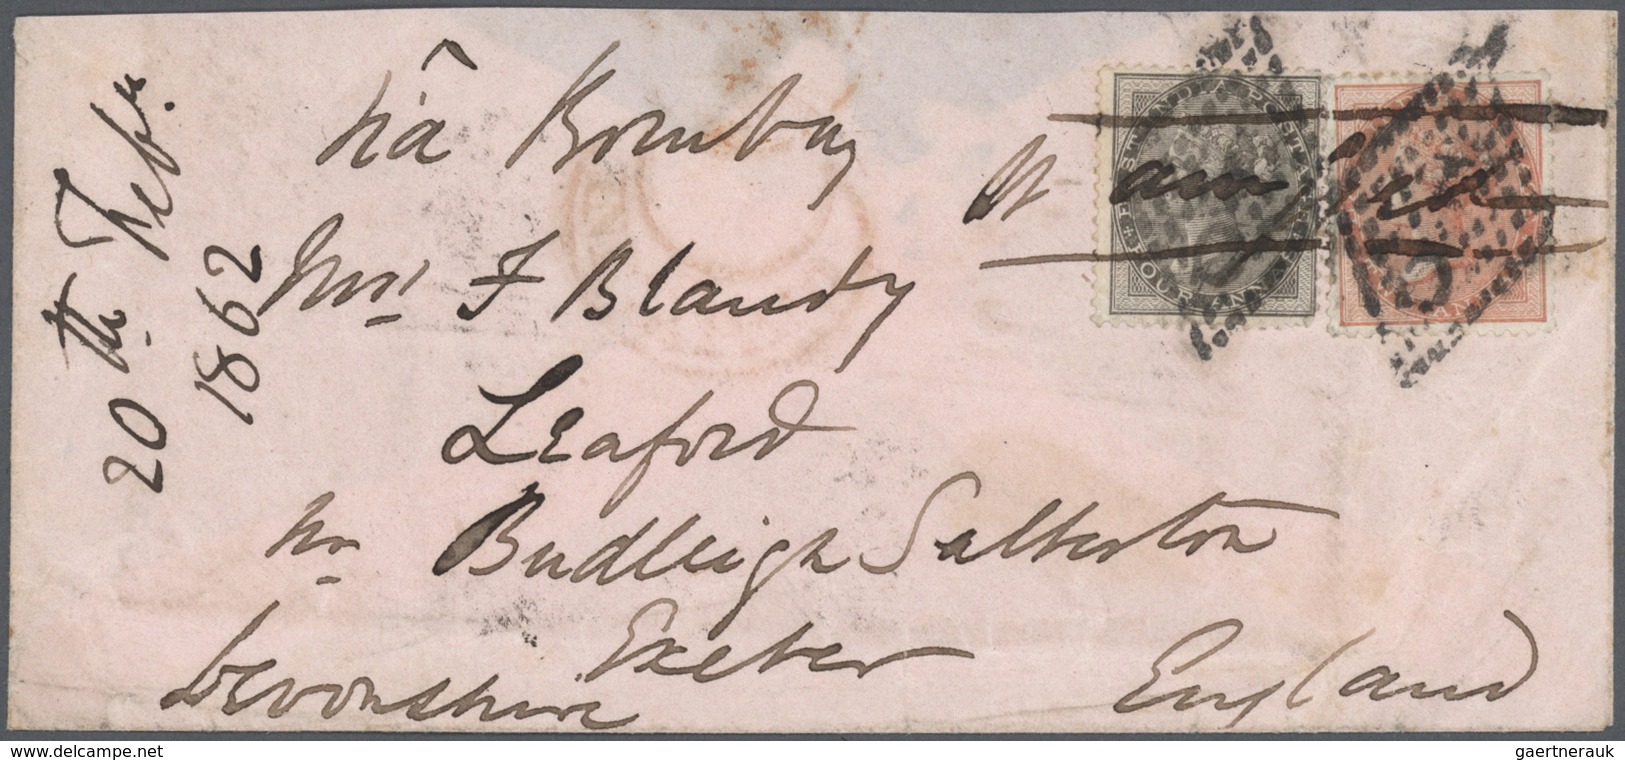 20th Feby.
1862
viâ Bombay
Mrs F Blandy
Leaford
nr Budleigh Salterton
Exeter
Devonshire
England
EAST INDIA POSTAGE
FOUR ANNAS
www.delcampe.net
gaertnerauk